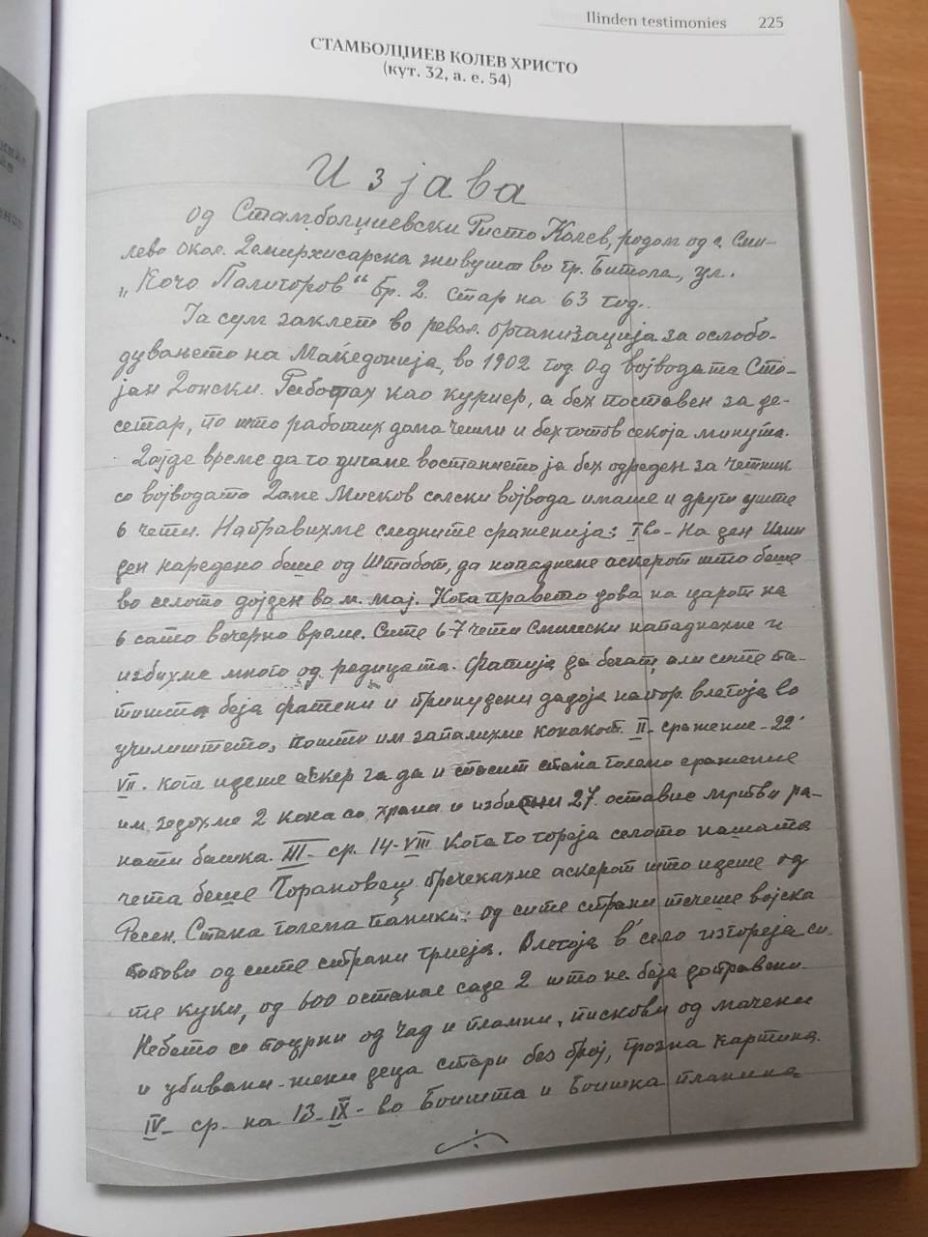 Ilinden testimonies 225
СТАМБОЛЏИЕВ КОЛЕВ ХРИСТО
(кут. 32, а. е. 54)
Изјава
од Стамболџиевски Ристо Колев, родом од с. Сми-
лево окол. Демирхисарска живушт во гр. Битола, ул.
„Кочо Палигоров“ бр. 2. Стар на 63 год.
Ја сум заклет во револ. организација за ослобо-
дувањето на Македонија, во 1902 год. од војводата Сто-
јан Донски. Работах као куриер, а бех поставен за де-
сетар, по што работих дома чешли и бех готов секоја минута.
Дојде време да го дигаме востанието ја бех одреден за четник
со војводата Даме Мисков селски војвода имаше и други уште
6 чети. Направихме следните сраженија: I во - На ден Илин
ден наредено беше од Штабот, да нападнеме аскерот што беше
во селото дојден во м. мај. Кога правето дова на царот на
6 сато вечерно време. Сите 6-7 чети Смилески нападнахме и
избихме много од редицата. Фатија да бегат, али сите па-
тишта беја фатени и принудени дадоја напор. влегоја во
училиштето, пошто им запалихме конакот. II - сражение - 22
VII. кога идеше аскер за да и спасит стана големо сражение
им зедохме 2 коња со храна и 27. оставие мртви ра-
нати башка. III - ср. 14 - VIII Кога го гореја селото нашата
чета беше пречекахме аскерот што идеше од
Ресен. Стана голема паника: од сите страни течеше војска
топови од сите страни грмеја. Влегоја в' село изгореја си
те куки, од 600 останае саде 2 што не беја доправени.
Небото се поцрни од чад и пламни, пискови од мачени
и убивани - жени деца стари без број, грозна картина.
IV - ср. на 13 - IX - во Боишта и Боишка планина